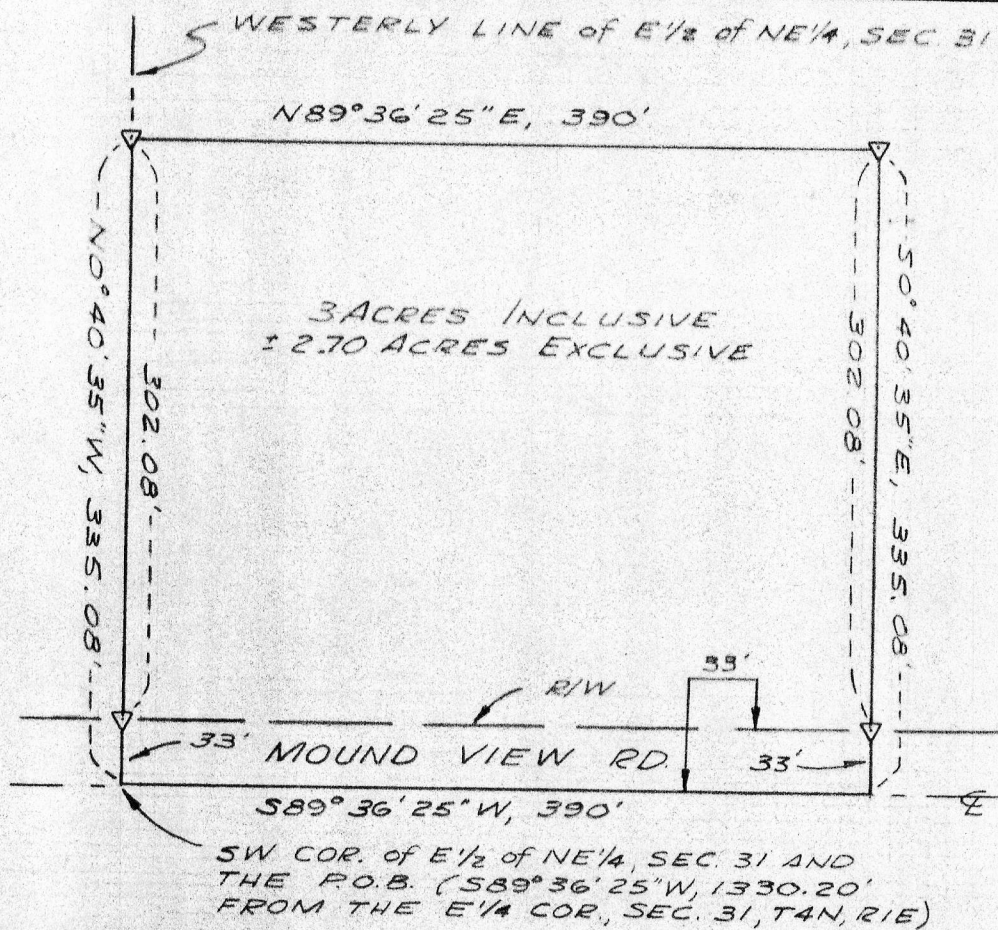 WESTERLY LINE of E½ of NE¼, SEC. 31
N89°36'25"E, 390'
N0°40'35"W, 335.08'
302.08'
3 ACRES INCLUSIVE
± 2.70 ACRES EXCLUSIVE
302.08'
S0°40'35"E, 335.08'
33'
R/W
33'
MOUND VIEW RD.
33'
S89°36'25"W, 390'
℄
SW COR. of E½ of NE¼, SEC. 31 AND
THE P.O.B. (S89°36'25"W, 1330.20'
FROM THE E¼ COR., SEC. 31, T4N, R1E)